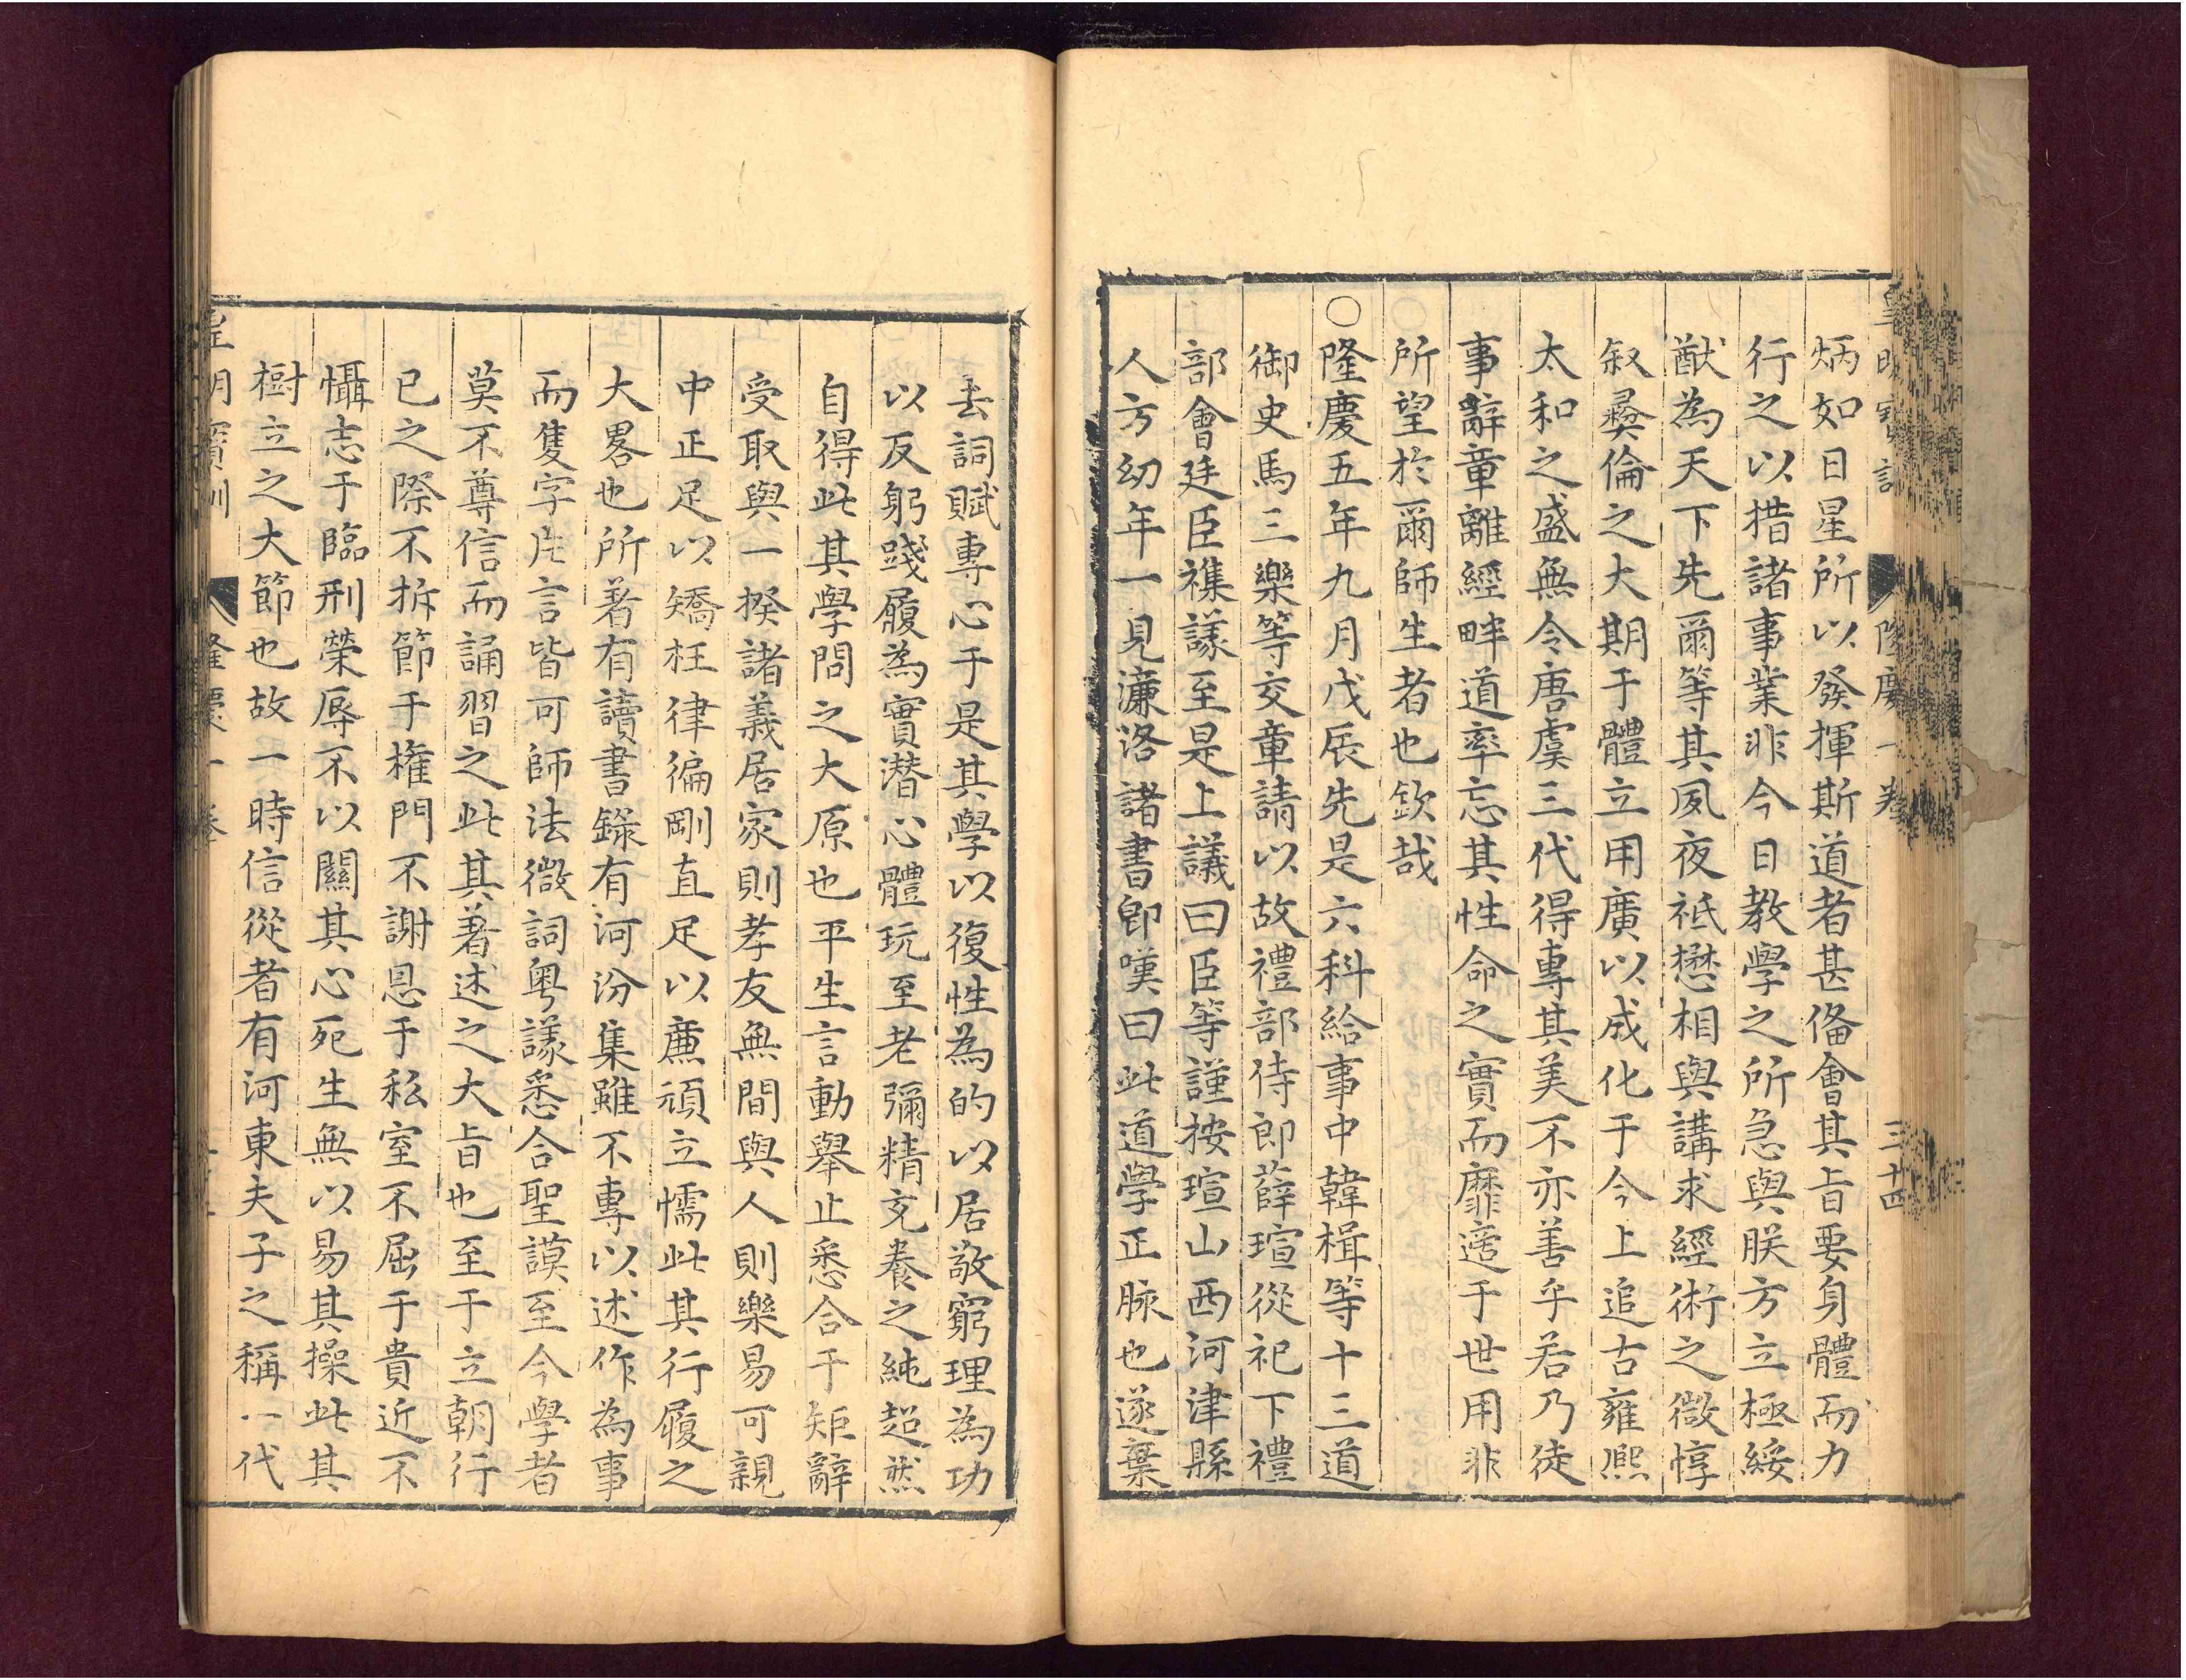 皇明寶訓 隆慶一卷 三十四
炳如日星所以發揮斯道者甚俻會其旨要身體而力
行之以措諸事業非今日教學之所急與朕方立極綏
猷為天下先爾等其夙夜祗懋相與講求經術之微惇
叙彛倫之大期于體立用廣以成化于今上追古雍熈
太和之盛無令唐虞三代得專其美不亦善乎若乃徒
事辭章離經畔道率忘其性命之實而靡適于世用非
所望於爾師生者也欽哉
○隆慶五年九月戊辰先是六科給事中韓楫等十三道
御史馬三樂等交章請以故禮部侍郎薛瑄從祀下禮
部會廷臣襍議至是上議曰臣等謹按瑄山西河津縣
人方幼年一見濂洛諸書卽嘆曰此道學正脉也遂棄
去詞賦專心于是其學以復性為的以居敬窮理為功
以反躬踐履為實潜心體玩至老彌精充養之純超然
自得此其學問之大原也平生言動舉止悉合于矩辭
受取與一揆諸義居家則孝友無間與人則樂易可親
中正足以矯枉律徧剛直足以亷頑立懦此其行履之
大畧也所著有讀書錄有河汾集雖不專以述作為事
而隻字片言皆可師法微詞粤議悉合聖謨至今學者
莫不尊信而誦習之此其著述之大旨也至于立朝行
已之際不拆節于權門不謝恩于私室不屈于貴近不
懾志于臨刑榮辱不以關其心死生無以易其操此其
樹立之大節也故一時信從者有河東夫子之稱一代
皇明寶訓 隆慶一卷